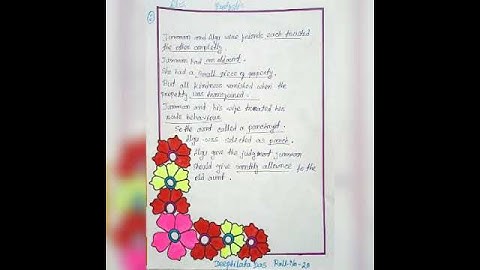 Jumman and Algu were friends each trusted
the other completly.
Jumman had an old aunt.
She had a small piece of property.
But all kindness vanished when the
property was transferred.
Jumman and his wife treated her
rude behaviour
So the aunt called a panchayat.
Algu was selected as panch.
Algu give the judgment Jumman
should give monthly allowance to the
old aunt.
Deeptilata Das Roll-No-20